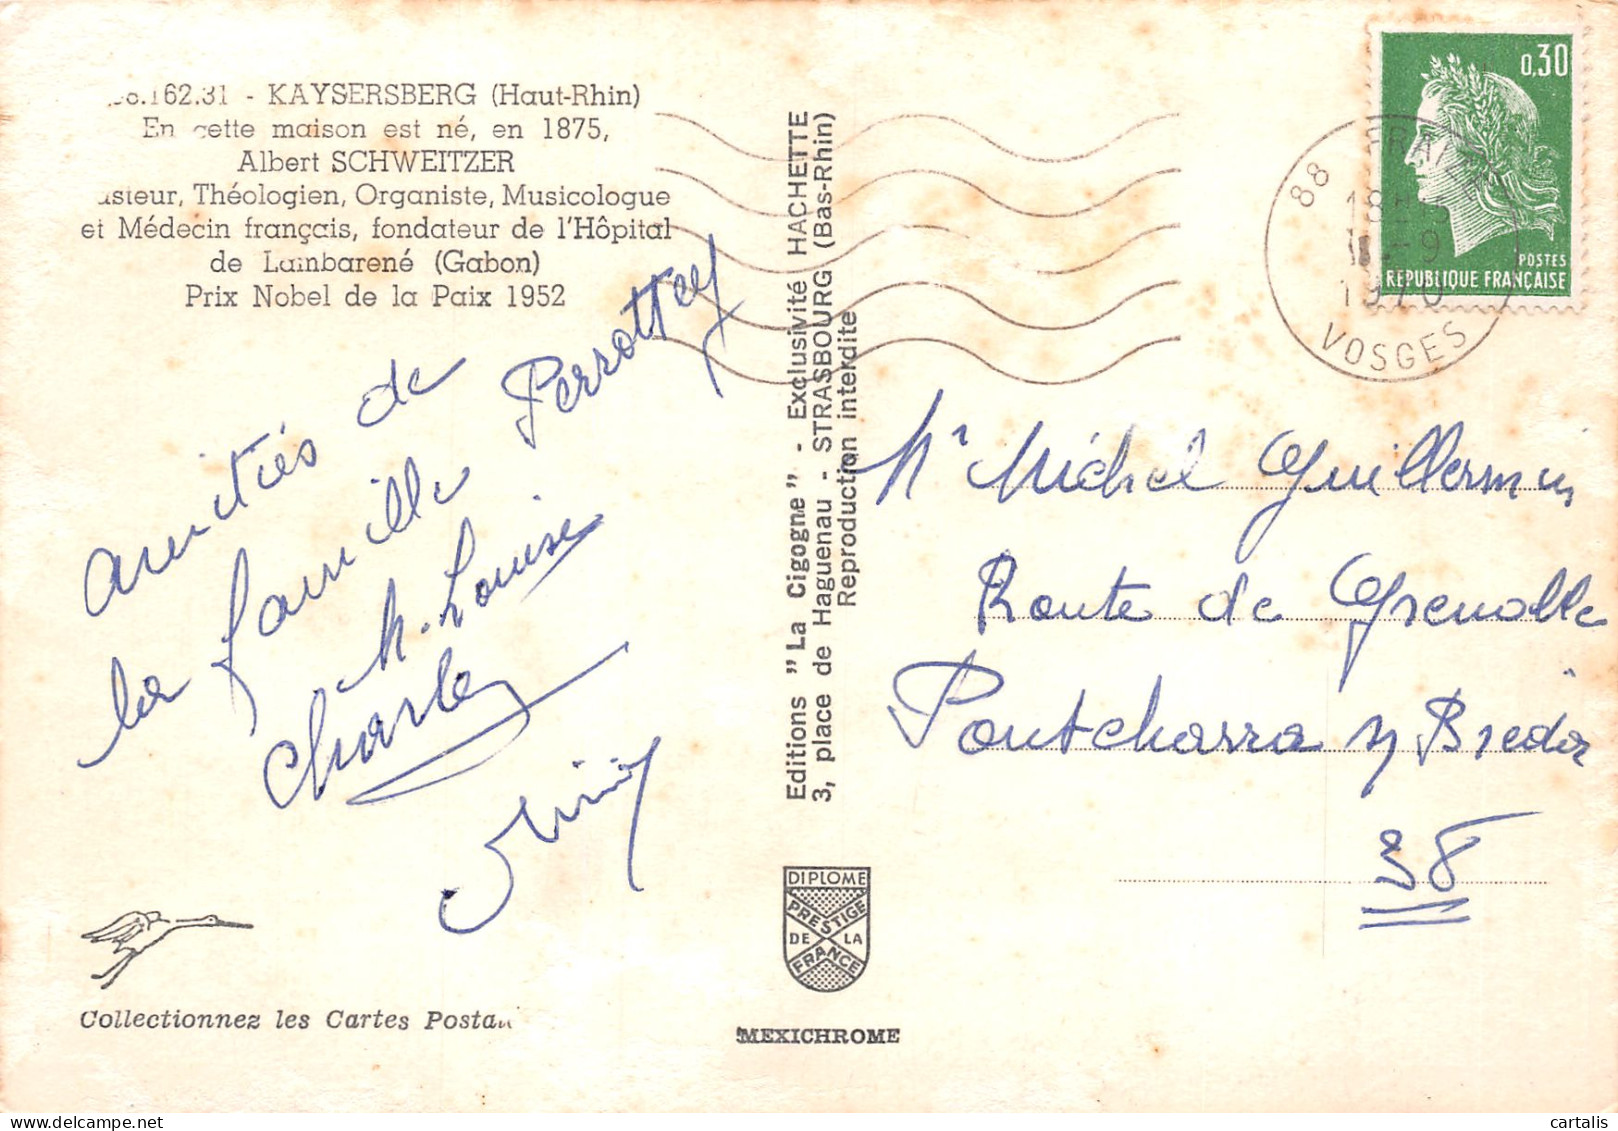 .162.31 - KAYSERSBERG (Haut-Rhin)
En cette maison est né, en 1875,
Albert SCHWEITZER
asteur, Théologien, Organiste, Musicologue
et Médecin français, fondateur de l'Hôpital
de Lambarené (Gabon)
Prix Nobel de la Paix 1952
amitiés de
la famille Perrottey
M. Louise
Charles
Collectionnez les Cartes Posta
Editions "La Cigogne" - Exclusivité HACHETTE
3, place de Haguenau - STRASBOURG (Bas-Rhin)
Reproduction interdite
DIPLOME
PRESTIGE
DE LA
FRANCE
MEXICHROME
0,30
POSTES
REPUBLIQUE FRANÇAISE
88 FRAIZE
18H
-9
1970
VOSGES
Mr Michel Guillermin
Route de Grenoble
Pontcharra
38
cartalis